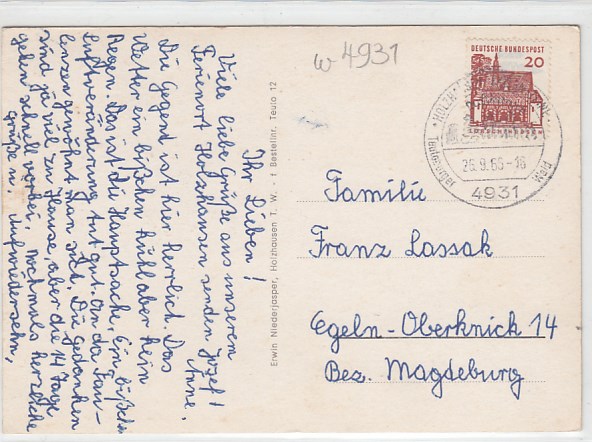 Ihr Lieben!
Viele liebe Grüße aus unserem
Ferienort Holzhausen senden Jozef!
Anne.
Die Gegend ist hier herlich. Das
Wetter ein bißchen kühl aber kein
Regen. Das ist die Hauptsache, Ein bißchen
Luftveränderung tut gut. An da Fau-
lenzen gewöhnt man sich. Die Gedanken
sind ja viel zu Hause, aber die 14 Tage
gehen schnell vorbei, nochmals herzliche
Grüße u. Aufwiedersehn,
Erwin Niederjasper, Holzhausen T. W. - † Bestellnr. Teuto 12
w 4931
DEUTSCHE BUNDESPOST
20
LORSCH/HESSEN
Teutoburger Wald
26.9.66-16
4931
Familie
Franz Lassak
Egeln-Oberknick 14
Bez. Magdeburg